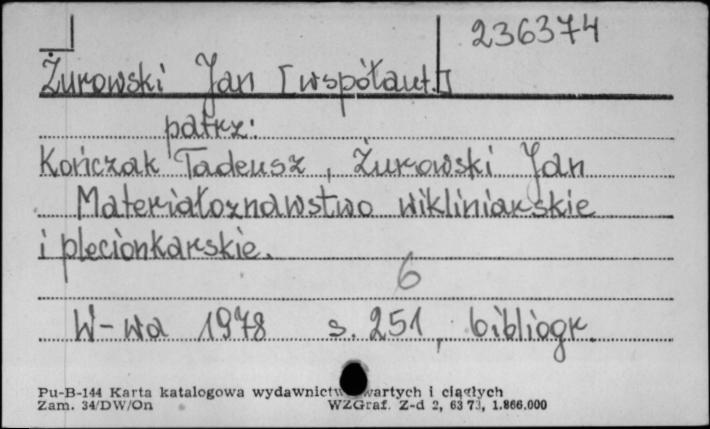 236374
Żurowski Jan [współaut.]
patrz:
Kończak Tadeusz, Żurowski Jan
Materiałoznawstwo wikliniarskie
i plecionkarskie.
6
W-wa 1978 s. 251, bibliogr.
Pu-B-144 Karta katalogowa wydawnictw zwartych i ciągłych
Zam. 34/DW/On WZGraf. Z-d 2, 63 73, 1.866.000